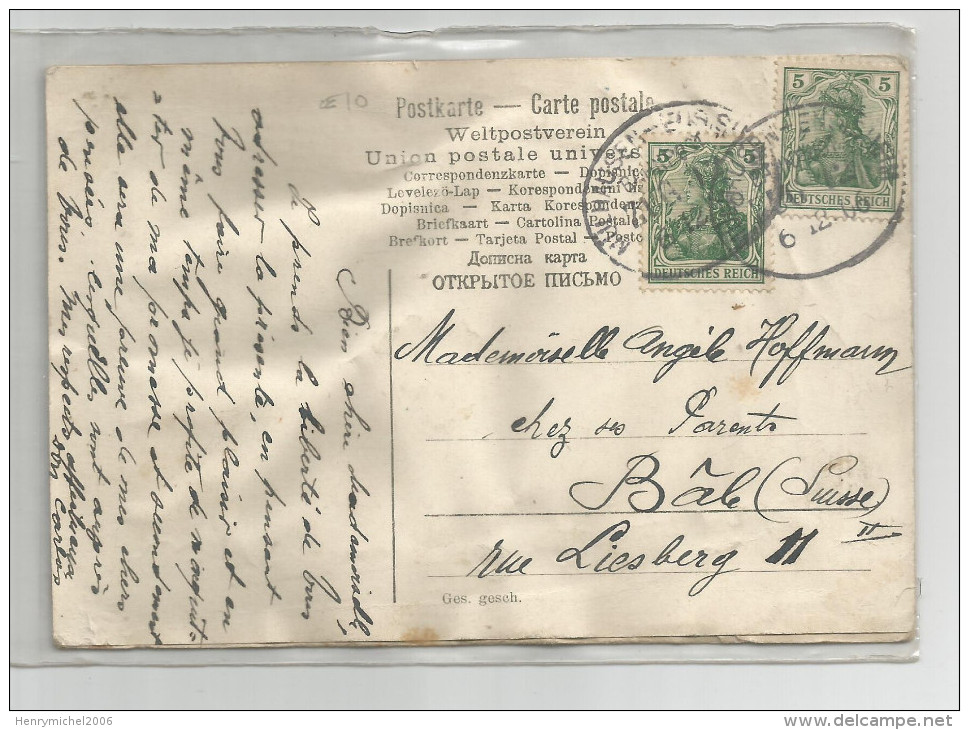 Œ10
Postkarte — Carte postale
Weltpostverein
Union postale univers
Correspondenzkarte — Dopisnice
Levelező-Lap — Korespondenční
Dopisnica — Karta Korespondenc
Briefkaart — Cartolina Postale
Brefkort — Tarjeta Postal — Posto
Дописна карта
ОТКРЫТОЕ ПИСЬМО
5 5
DEUTSCHES REICH
5 5
DEUTSCHES REICH
6 12 06
Mademoiselle Angèle Hoffmann
chez ses Parents
Bâle (Suisse)
rue Liesberg 11 II
Ges. gesch.
Bien chère Mademoiselle
Je prends la liberté de vous
adresser la présente, en pensant
vous faire grand plaisir et en
même temps je profite de m'acquit-
ter de ma promesse et seulement
elle sera une preuve de mes chers
pensées, lesquelles sont auprès
de vous. Mes respects affectueux
Don Carlos
Henrymichel2006
www.delcampe.net